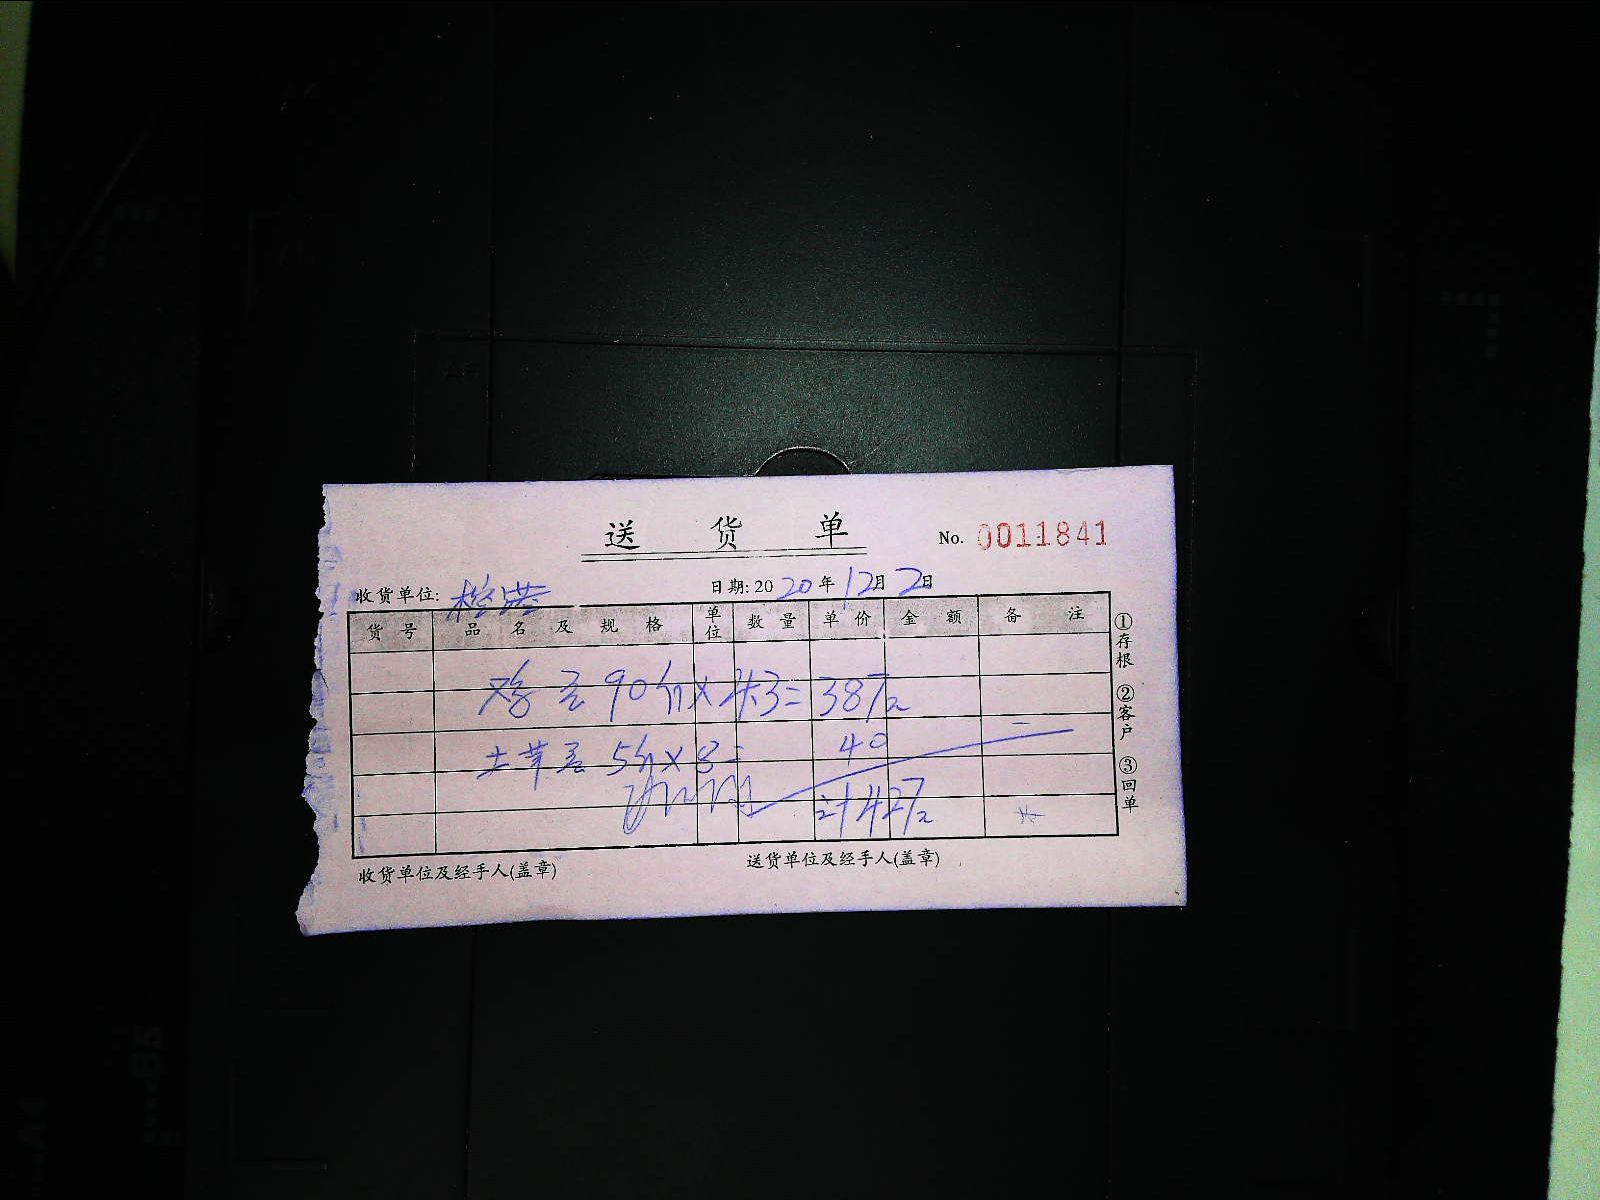 送 货 单
No. 0011841
收货单位:
日期: 2020年12月2日
货号 品名及规格 单位 数量 单价 金额 备注
鸡蛋 90斤×4.3=387元
土草蛋 5斤×8= 40
计427元
收货单位及经手人(盖章)
送货单位及经手人(盖章)
①存根 ②客户 ③回单
B5
A4